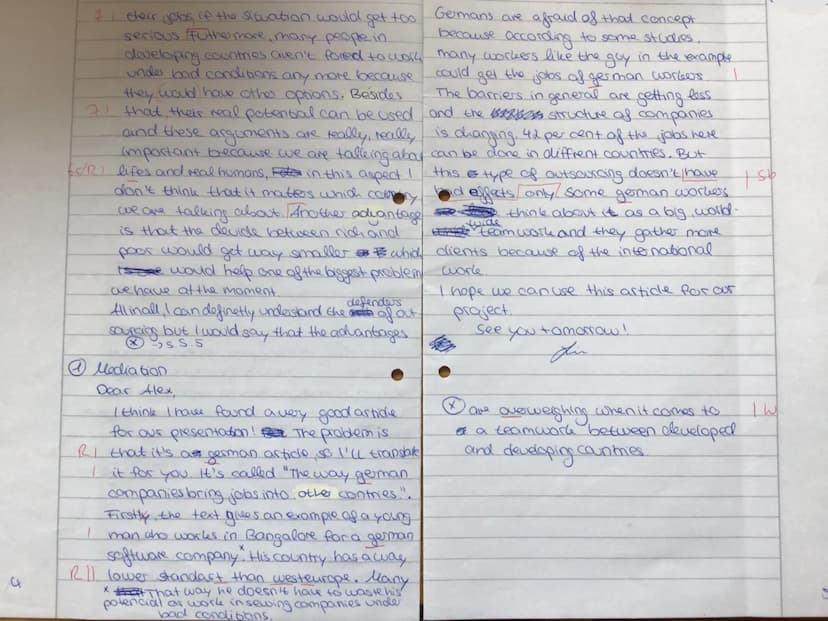 7 | their jobs, if the situation would get too
serious. Furthermore, many people in
developing countries aren't forced to work
under bad conditions any more because
they would have other options. Besides
7 | that, their real potential can be used
and these arguments are really, really,
important because we are talking about
lifes and real humans, in this aspect I
don't think that it matters which company
we are talking about. Another advantage
is that the devide between rich and
poor would get way smaller which
would help one of the biggest problem
we have at the moment.
All in all, I can definetly understand the defenders of out
sourcing but I would say that the advantages
ⓧ → S. 5
① Mediation
Dear Alex,
I think I have found a very good article
for our presentation! The problem is
R | that it's a german article, so I'll translate
| it for you. It's called "The way german
companies bring jobs into other contries.".
Firstly, the text gives an example of a young
| man who works in Bangalore for a german
software company.ˣ His country has a way
R || lower standast than westeurope. Many
x That way he doesn't have to waste his
potencial as work in sewing companies under
bad conditions.
4
Germans are afraid of that concept
because according to some studies,
many workers like the guy in the example
could get the jobs of german workers. |
The barriers in general are getting less
and the structure of companies
is changing. 42 per cent of the jobs here
can be done in diffrent countries. But
this type of outsourcing doesn't have | Sb
bad effects, only some german workers
think about it as a big, world-
wide teamwork and they gather more
clients because of the international
work.
I hope we can use this article for our
project.
See you tomorrow!
ⓧ are overweighing when it comes to | W
a teamwork between developed
and developing countries.